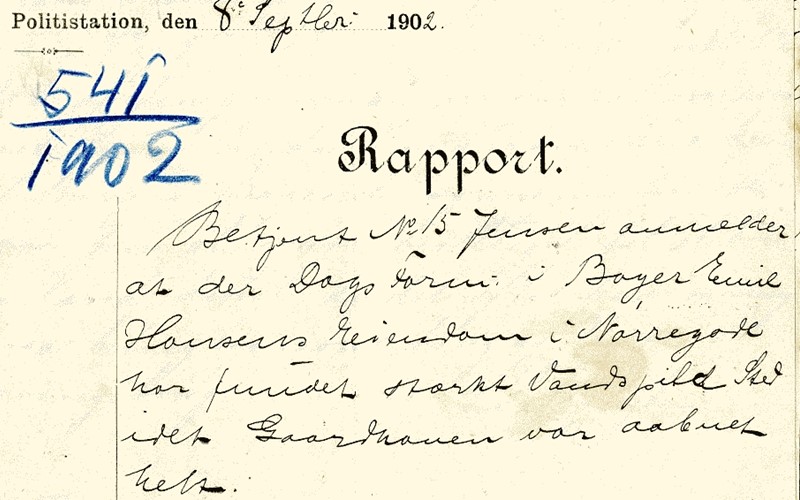 Politistation, den 8de Septbr: 1902.
541
1902
Rapport.
Betjent No 15 Jensen anmelder
at der Dags Form: i Bager Emil
Hansens Eiendom i Nørregade
har fundet stærkt Vandspild Sted
idet Gaardhanen var aabnet
helt.